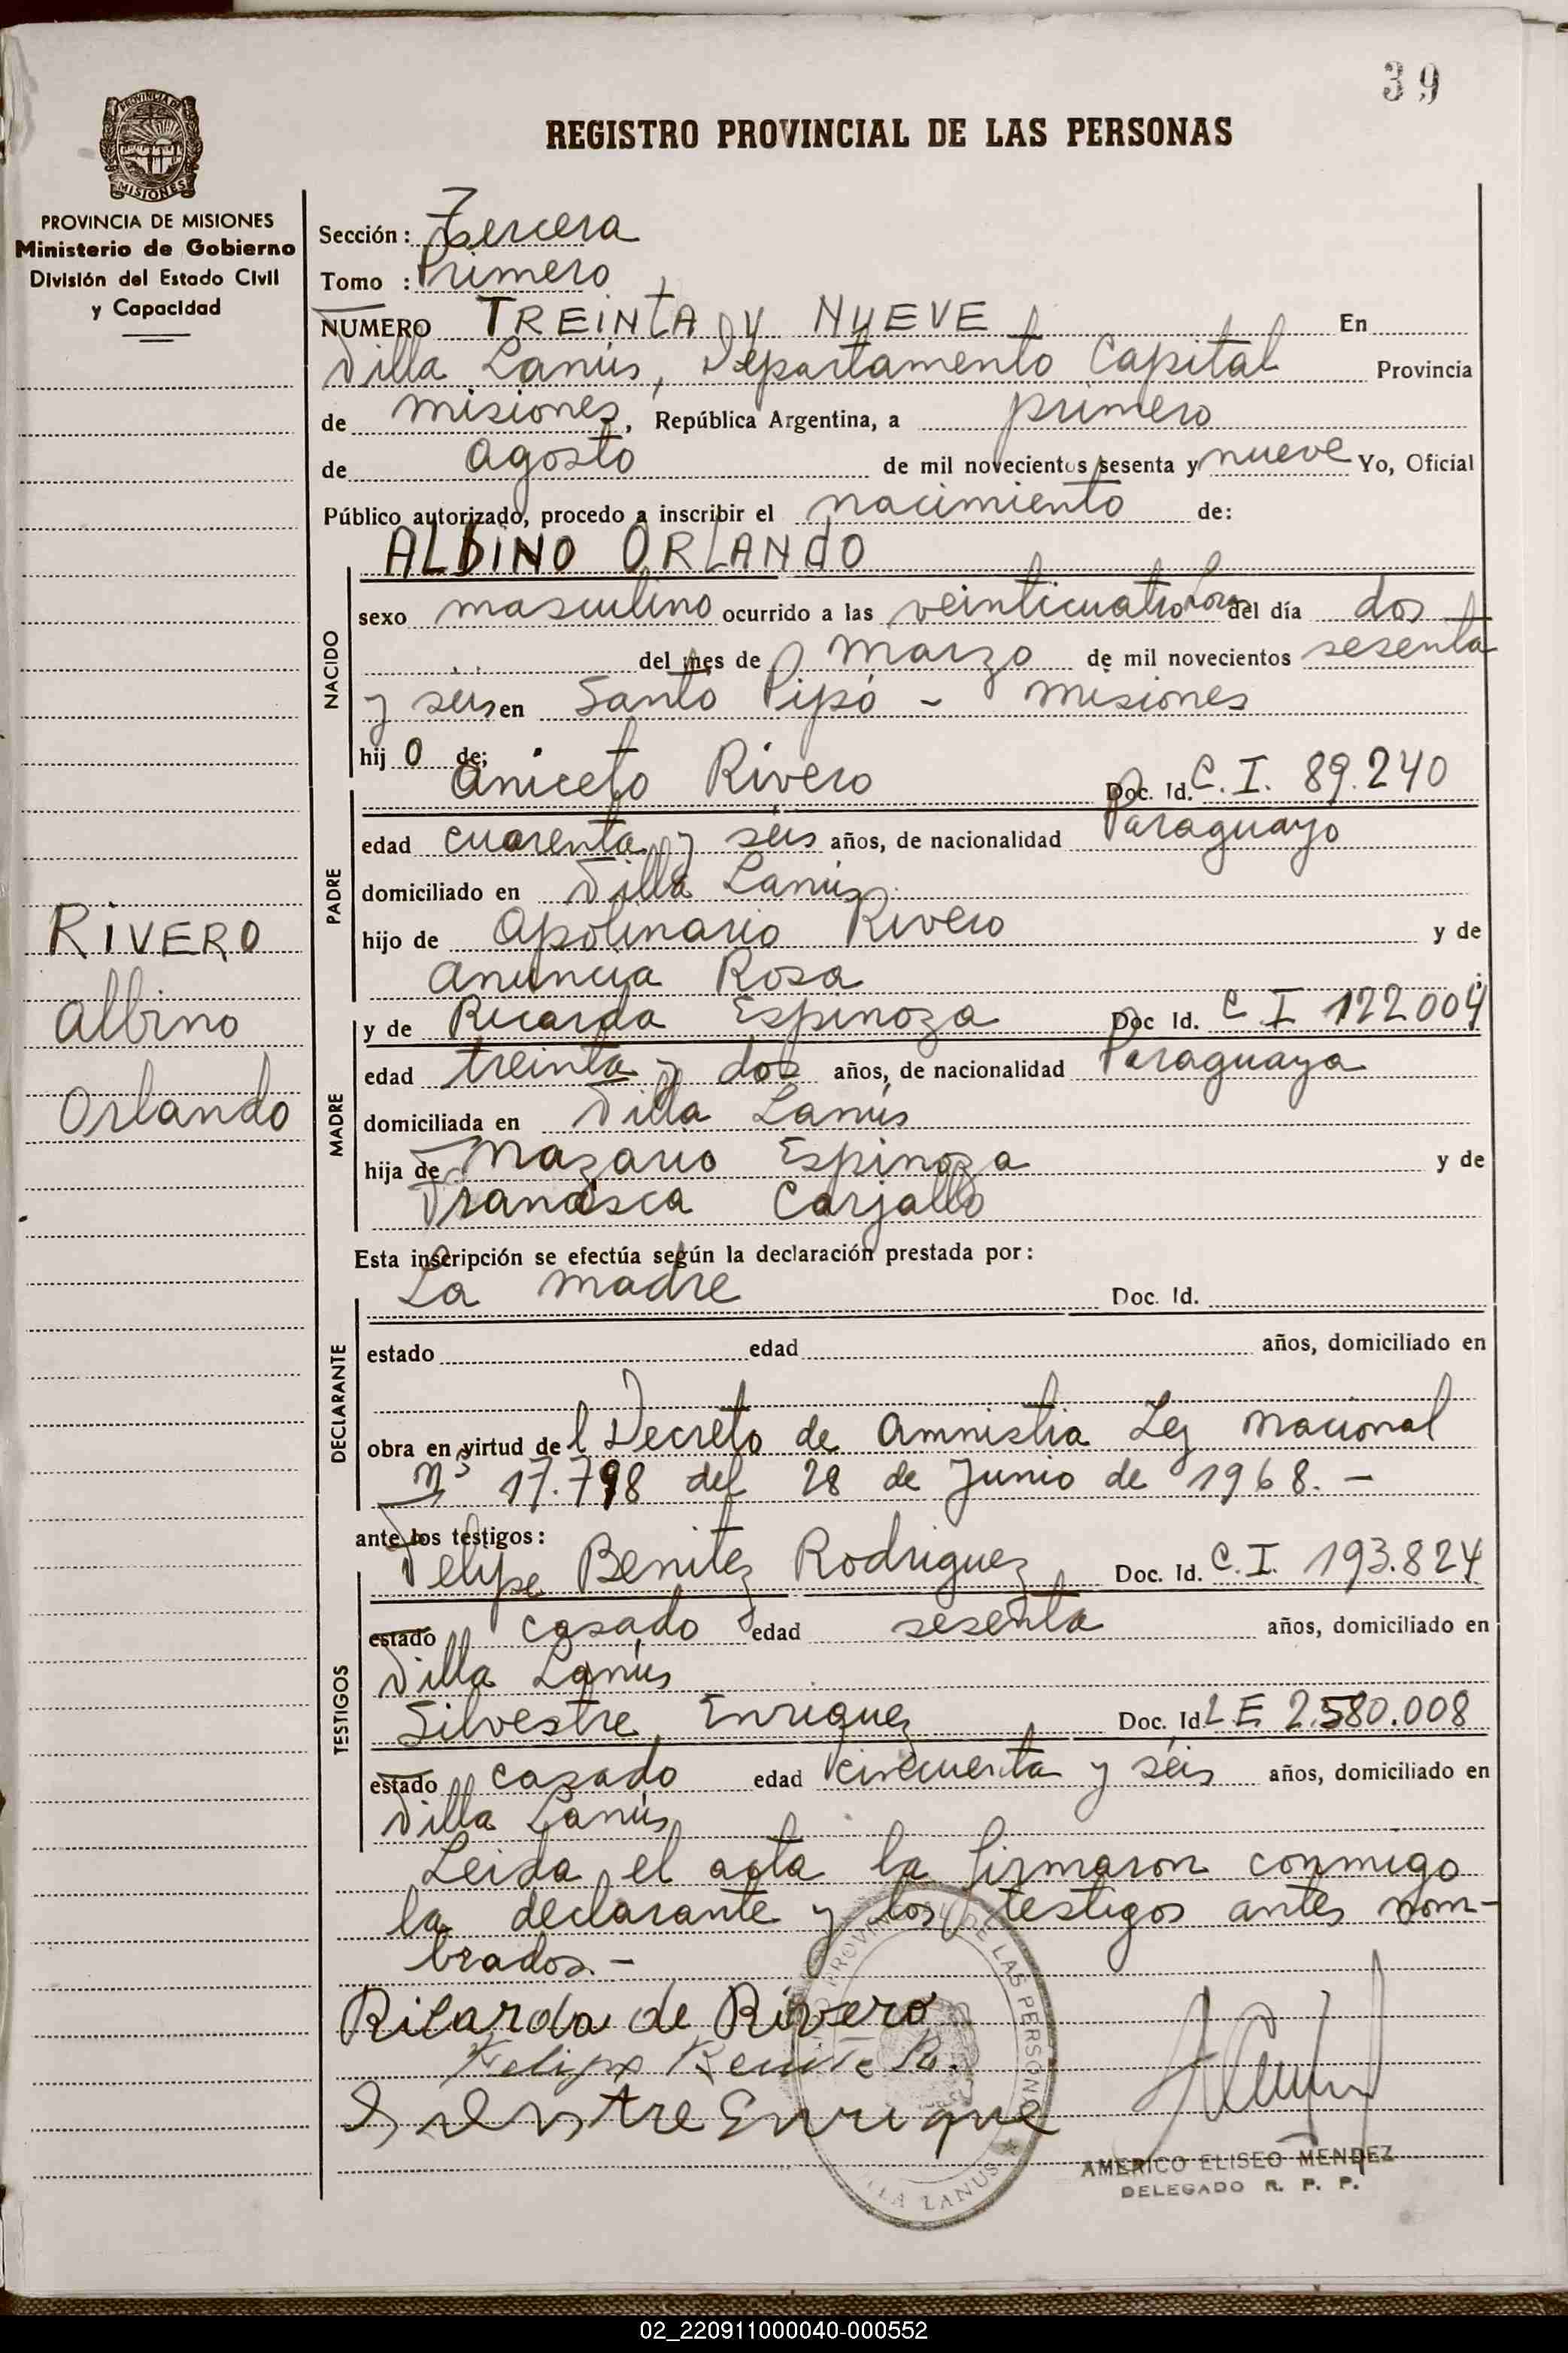 39
REGISTRO PROVINCIAL DE LAS PERSONAS
PROVINCIA DE MISIONES
Ministerio de Gobierno
División del Estado Civil
y Capacidad
Sección: Tercera
Tomo : Primero
NUMERO TREINTA y NUEVE En
Villa Lanús, Departamento Capital Provincia
de Misiones, República Argentina, a primero
de Agosto de mil novecientos sesenta y nueve Yo, Oficial
Público autorizado, procedo a inscribir el nacimiento de:
ALBINO ORLANDO
NACIDO
sexo masculino ocurrido a las veinticuatro horas del día dos
del mes de Marzo de mil novecientos sesenta
y seis en Santo Pipó - Misiones
hijo de;
Aniceto Rivero Doc. Id. C. I. 89.240
PADRE
edad cuarenta y seis años, de nacionalidad Paraguayo
domiciliado en Villa Lanús
hijo de Apolinario Rivero y de
Anuncia Rosa
MADRE
y de Ricarda Espinoza Doc Id. C I 122004
edad treinta y dos años, de nacionalidad Paraguaya
domiciliada en Villa Lanús
hija de Mazario Espinoza y de
Francisca Carjallo
RIVERO
Albino
Orlando
Esta inscripción se efectúa según la declaración prestada por:
La madre Doc. Id.
DECLARANTE
estado edad años, domiciliado en
obra en virtud del Decreto de Amnistia Ley Nacional
Nº 17.798 del 28 de Junio de 1968. -
ante los testigos:
Felipe Benitez Rodriguez Doc. Id. C. I. 193.824
TESTIGOS
estado casado edad sesenta años, domiciliado en
Villa Lanús
Silvestre Enriquez Doc. Id L E 2.580.008
estado casado edad cincuenta y seis años, domiciliado en
Villa Lanús
Leida el acta la firmaron conmigo
la declarante y los testigos antes nom-
brados. -
Ricarda de Rivero
Felipe Benite R.
Silvestre Enrique
AMERICO ELISEO MENDEZ
DELEGADO R. P. P.
PROVINCIAL DE LAS PERSONAS
VILLA LANUS
PROVINCIA DE
MISIONES
02_220911000040-000552